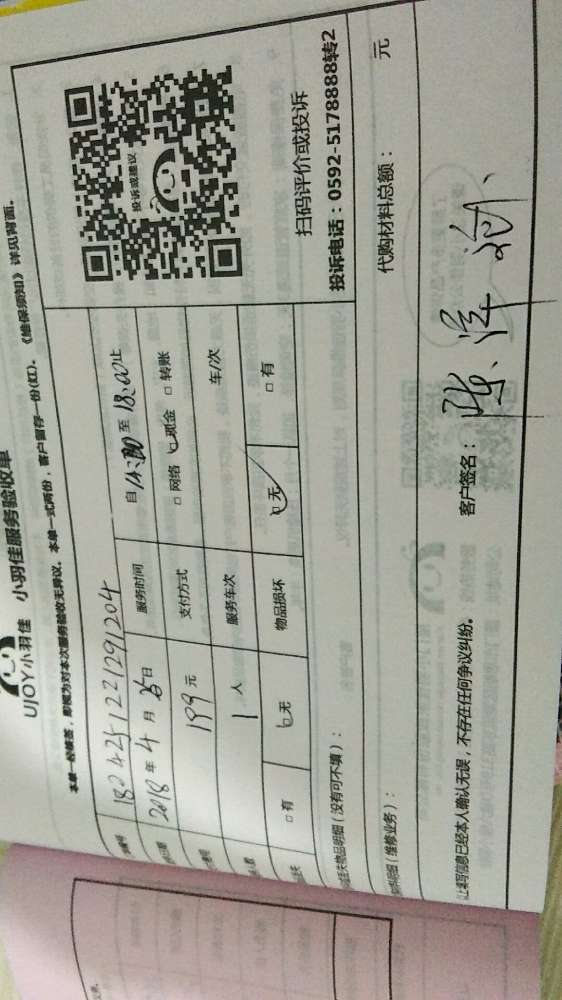 UJOY小羽佳 小羽佳服务验收单
本单一经签签，即视为对本次服务验收无异议。本单一式两份，客户留存一份(红)。《维保须知》详见背面。
1804251221291204
2018年4月26日 服务时间 自14:00至18:00止
199元 支付方式 □网络 ☑现金 □转账
1人 服务车次 车/次
□有 ☑无 物品损坏 ☑无 □有
投诉或建议
扫码评价或投诉
投诉电话：0592-5178888转2
物品明细（没有可不填）：
明细（维修业务）： 代购材料总额： 元
以上填写信息已经本人确认无误，不存在任何争议纠纷。 客户签名：